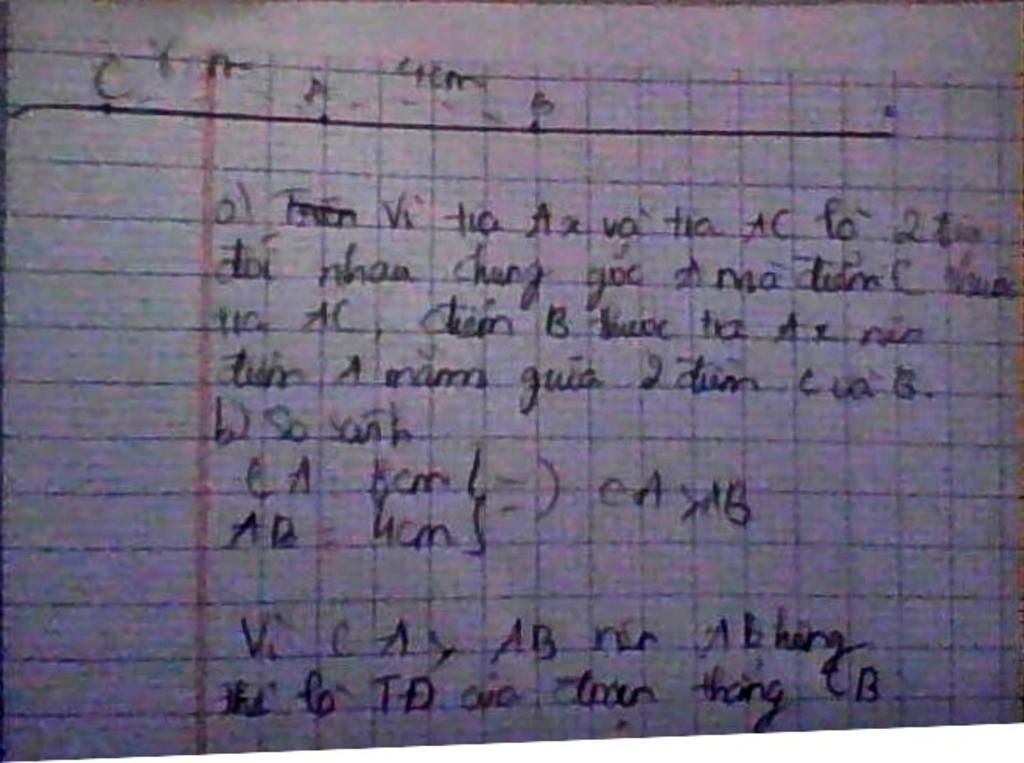 C A 4cm B
a) Vì tia Ax và tia AC là 2 tia
đối nhau chung gốc A mà điểm C thuộc
tia AC, điểm B thuộc tia Ax nên
điểm A nằm giữa 2 điểm C và B.
b) So sánh
CA cm
AB = 4cm } => CA > AB
Vì CA > AB nên A không
thể là TĐ của đoạn thẳng CB